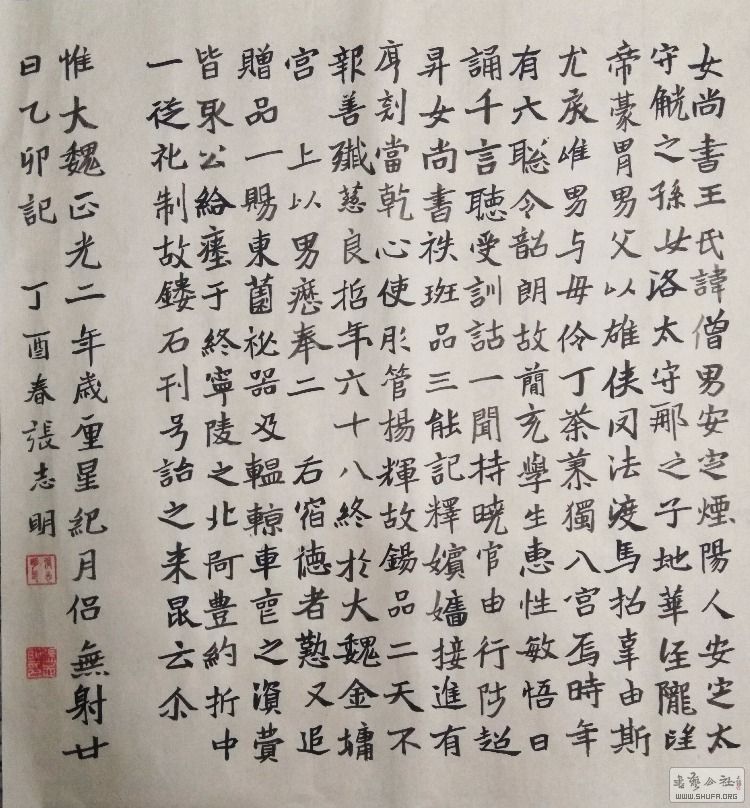 女尚書王氏諱僧男安定煙陽人安定太
守觥之孫女洛太守那之子地華俓隴望
帝豪胄男父以雄俠罔法渡馬招辜由斯
尤戾唯男与毋伶丁荼蓼獨入宮焉時年
有六聡令韶朗故簡充學生惠性敏悟日
誦千言聴受訓詁一聞持曉官由行陟超
昇女尚書秩班品三能記釋嬪嬙接進有
序剋當乾心使彤管揚輝故錫品二天不
報善殱慈良哲年六十八終於大魏金墉
宮 上以男歷奉二 后宿德者懃又追
贈品一賜東薗祕器及轀輬車䘮之資費
皆取公給瘞于終寧陵之北阿豊約折中
一従礼制故鏤石刊号詒之来昆云尒
惟大魏正光二年歲㕓星紀月侣無射廿
日乙卯記 丁酉春張志明
書藝公社
WWW.SHUFA.ORG